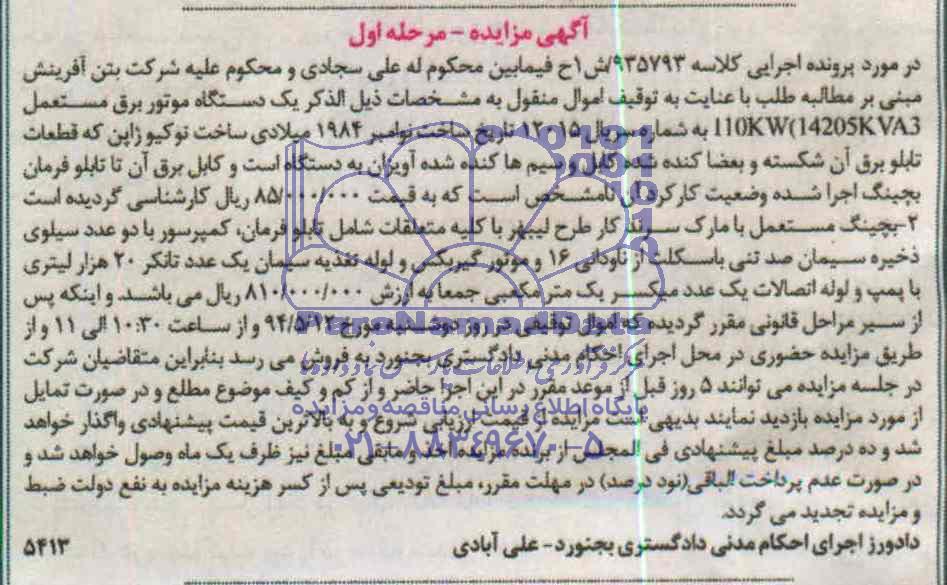 آگهی مزایده - مرحله اول
در مورد پرونده اجرایی کلاسه ۹۳۵۷۹۳/ش۱ح فیمابین محکوم له علی سجادی و محکوم علیه شرکت بتن آفرینش
مبنی بر مطالبه طلب با عنایت به توقیف اموال منقول به مشخصات ذیل الذکر یک دستگاه موتور برق مستعمل
110KW(14205KVA3 به شماره سریال ۱۲۰۱۵ تاریخ ساخت نوامبر ۱۹۸۴ میلادی ساخت توکیو ژاپن که قطعات
تابلو برق آن شکسته و بعضا کنده شده کابل و سیم ها کنده شده آویزان به دستگاه است و کابل برق آن تا تابلو فرمان
بچینگ اجرا شده وضعیت کارکرد آن نامشخص است که به قیمت ۸۵/۰۰۰/۰۰۰ ریال کارشناسی گردیده است
۲-بچینگ مستعمل با مارک سوند کار طرح لیبهر با کلیه متعلقات شامل تابلو فرمان، کمپرسور با دو عدد سیلوی
ذخیره سیمان صد تنی باسکلت از ناودانی ۱۶ و موتور گیربکس و لوله تغذیه سیمان یک عدد تانکر ۲۰ هزار لیتری
با پمپ و لوله اتصالات یک عدد میکسر یک متر مکعبی جمعا به ارزش ۸۱۰/۰۰۰/۰۰۰ ریال می باشد. و اینکه پس
از سیر مراحل قانونی مقرر گردیده که اموال توقیفی در روز دوشنبه مورخ ۹۴/۵/۱۲ و از ساعت ۱۰:۳۰ الی ۱۱ و از
طریق مزایده حضوری در محل اجرای احکام مدنی دادگستری بجنورد به فروش می رسد بنابراین متقاضیان شرکت
در جلسه مزایده می توانند ۵ روز قبل از موعد مقرر در این اجرا حاضر و از کم و کیف موضوع مطلع و در صورت تمایل
از مورد مزایده بازدید نمایند بدیهی است مزایده از قیمت ارزیابی شروع و به بالاترین قیمت پیشنهادی واگذار خواهد
شد و ده درصد مبلغ پیشنهادی فی المجلس از برنده مزایده اخذ و مابقی مبلغ نیز ظرف یک ماه وصول خواهد شد و
در صورت عدم پرداخت الباقی(نود درصد) در مهلت مقرر، مبلغ تودیعی پس از کسر هزینه مزایده به نفع دولت ضبط
و مزایده تجدید می گردد.
دادورز اجرای احکام مدنی دادگستری بجنورد - علی آبادی
۵۴۱۳
پایگاه اطلاع رسانی مناقصه و مزایده
۰۲۱-۸۸۳۴۹۶۷۰-۵